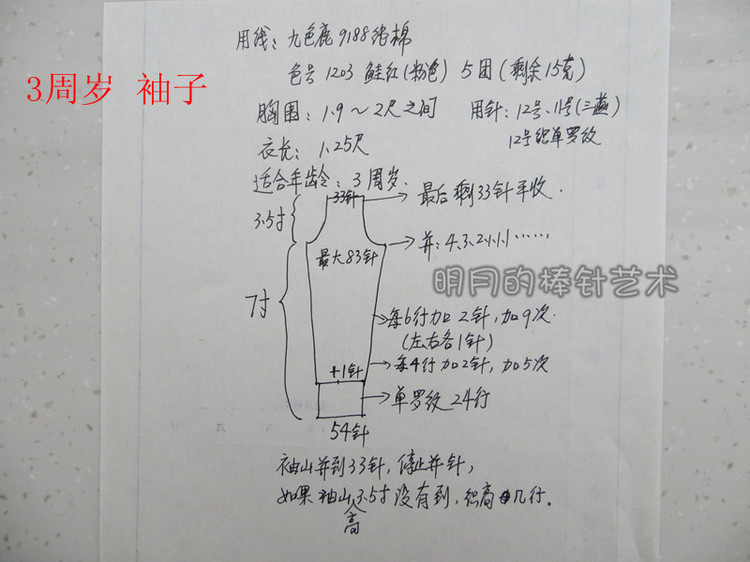 用线：九色鹿9188绵棉
3周岁 袖子
色号1203 鲑红(粉色) 5团(剩余15克)
胸围：1.9～2尺之间 用针：12号、11号(三燕)
衣长：1.25尺 12号织单罗纹
适合年龄：3周岁.
33针 最后剩33针平收.
3.5寸
并：4.3.2.1.1.1……
最大83针
明月的棒针艺术
7寸
每6行加2针,加9次
(左右各1针)
+1针 每4行加2针,加5次
单罗纹24行
54针
袖山并到33针,停止并针,
如果袖山高3.5寸没有到,织高几行.